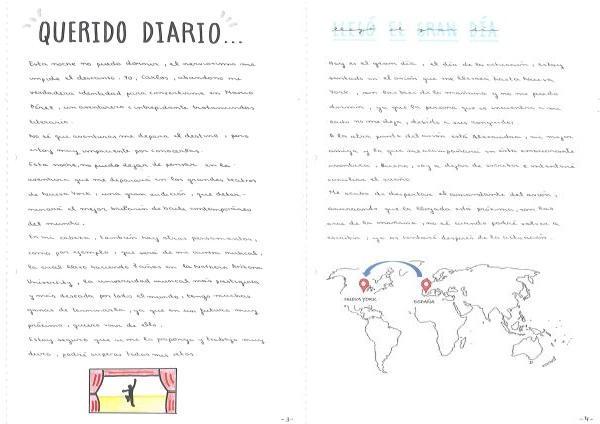 QUERIDO DIARIO...
Esta noche no puedo dormir, el nerviosismo me
impide el descanso. Yo, Carlos, abandono mi
verdadera identidad para convertirme en Marco
Pérez, un aventurero e intrépido trotamundos
literario.
No sé que aventuras me depara el destino, pero
estoy muy impaciente por conocerlas.
Esta noche, no puedo dejar de pensar en la
aventura que me deparará en los grandes teatros
de Nueva York, una gran audición, que deter-
minará el mejor bailarín de baile contemporáneo
del mundo.
En mi cabeza, también hay otros pensamientos,
como, por ejemplo, que será de mi carrera musical,
la cual llevo haciendo años en la
University, la universidad musical más prestigiosa
y más deseada por todo el mundo, tengo muchas
ganas de terminarla, ya que en un futuro muy
próximo, quiero vivir de ello.
Estoy seguro que si me lo propongo y trabajo muy
duro, podré superar todos mis retos.
-3-
LLEGÓ EL GRAN DÍA
Hoy es el gran día, el día de la actuación, estoy
sentado en el avión que me llevará hasta Nueva
York, son las tres de la mañana y no me puedo
dormir, ya que la persona que se encuentra a mi
lado no me deja, debido a sus ronquidos.
A la otra punta del avión está Alexandra, mi mejor
amiga y la que me acompañará en esta emocionante
aventura. Bueno, voy a dejar de escribir e intentaré
conciliar el sueño.
Me acabo de despertar el comandante del avión,
anunciando que la llegada está próxima, son las
once de la mañana, no sé cuando podré volver a
escribir, ya os contaré después de la actuación.
NUEVA YORK
ESPAÑA
-4-